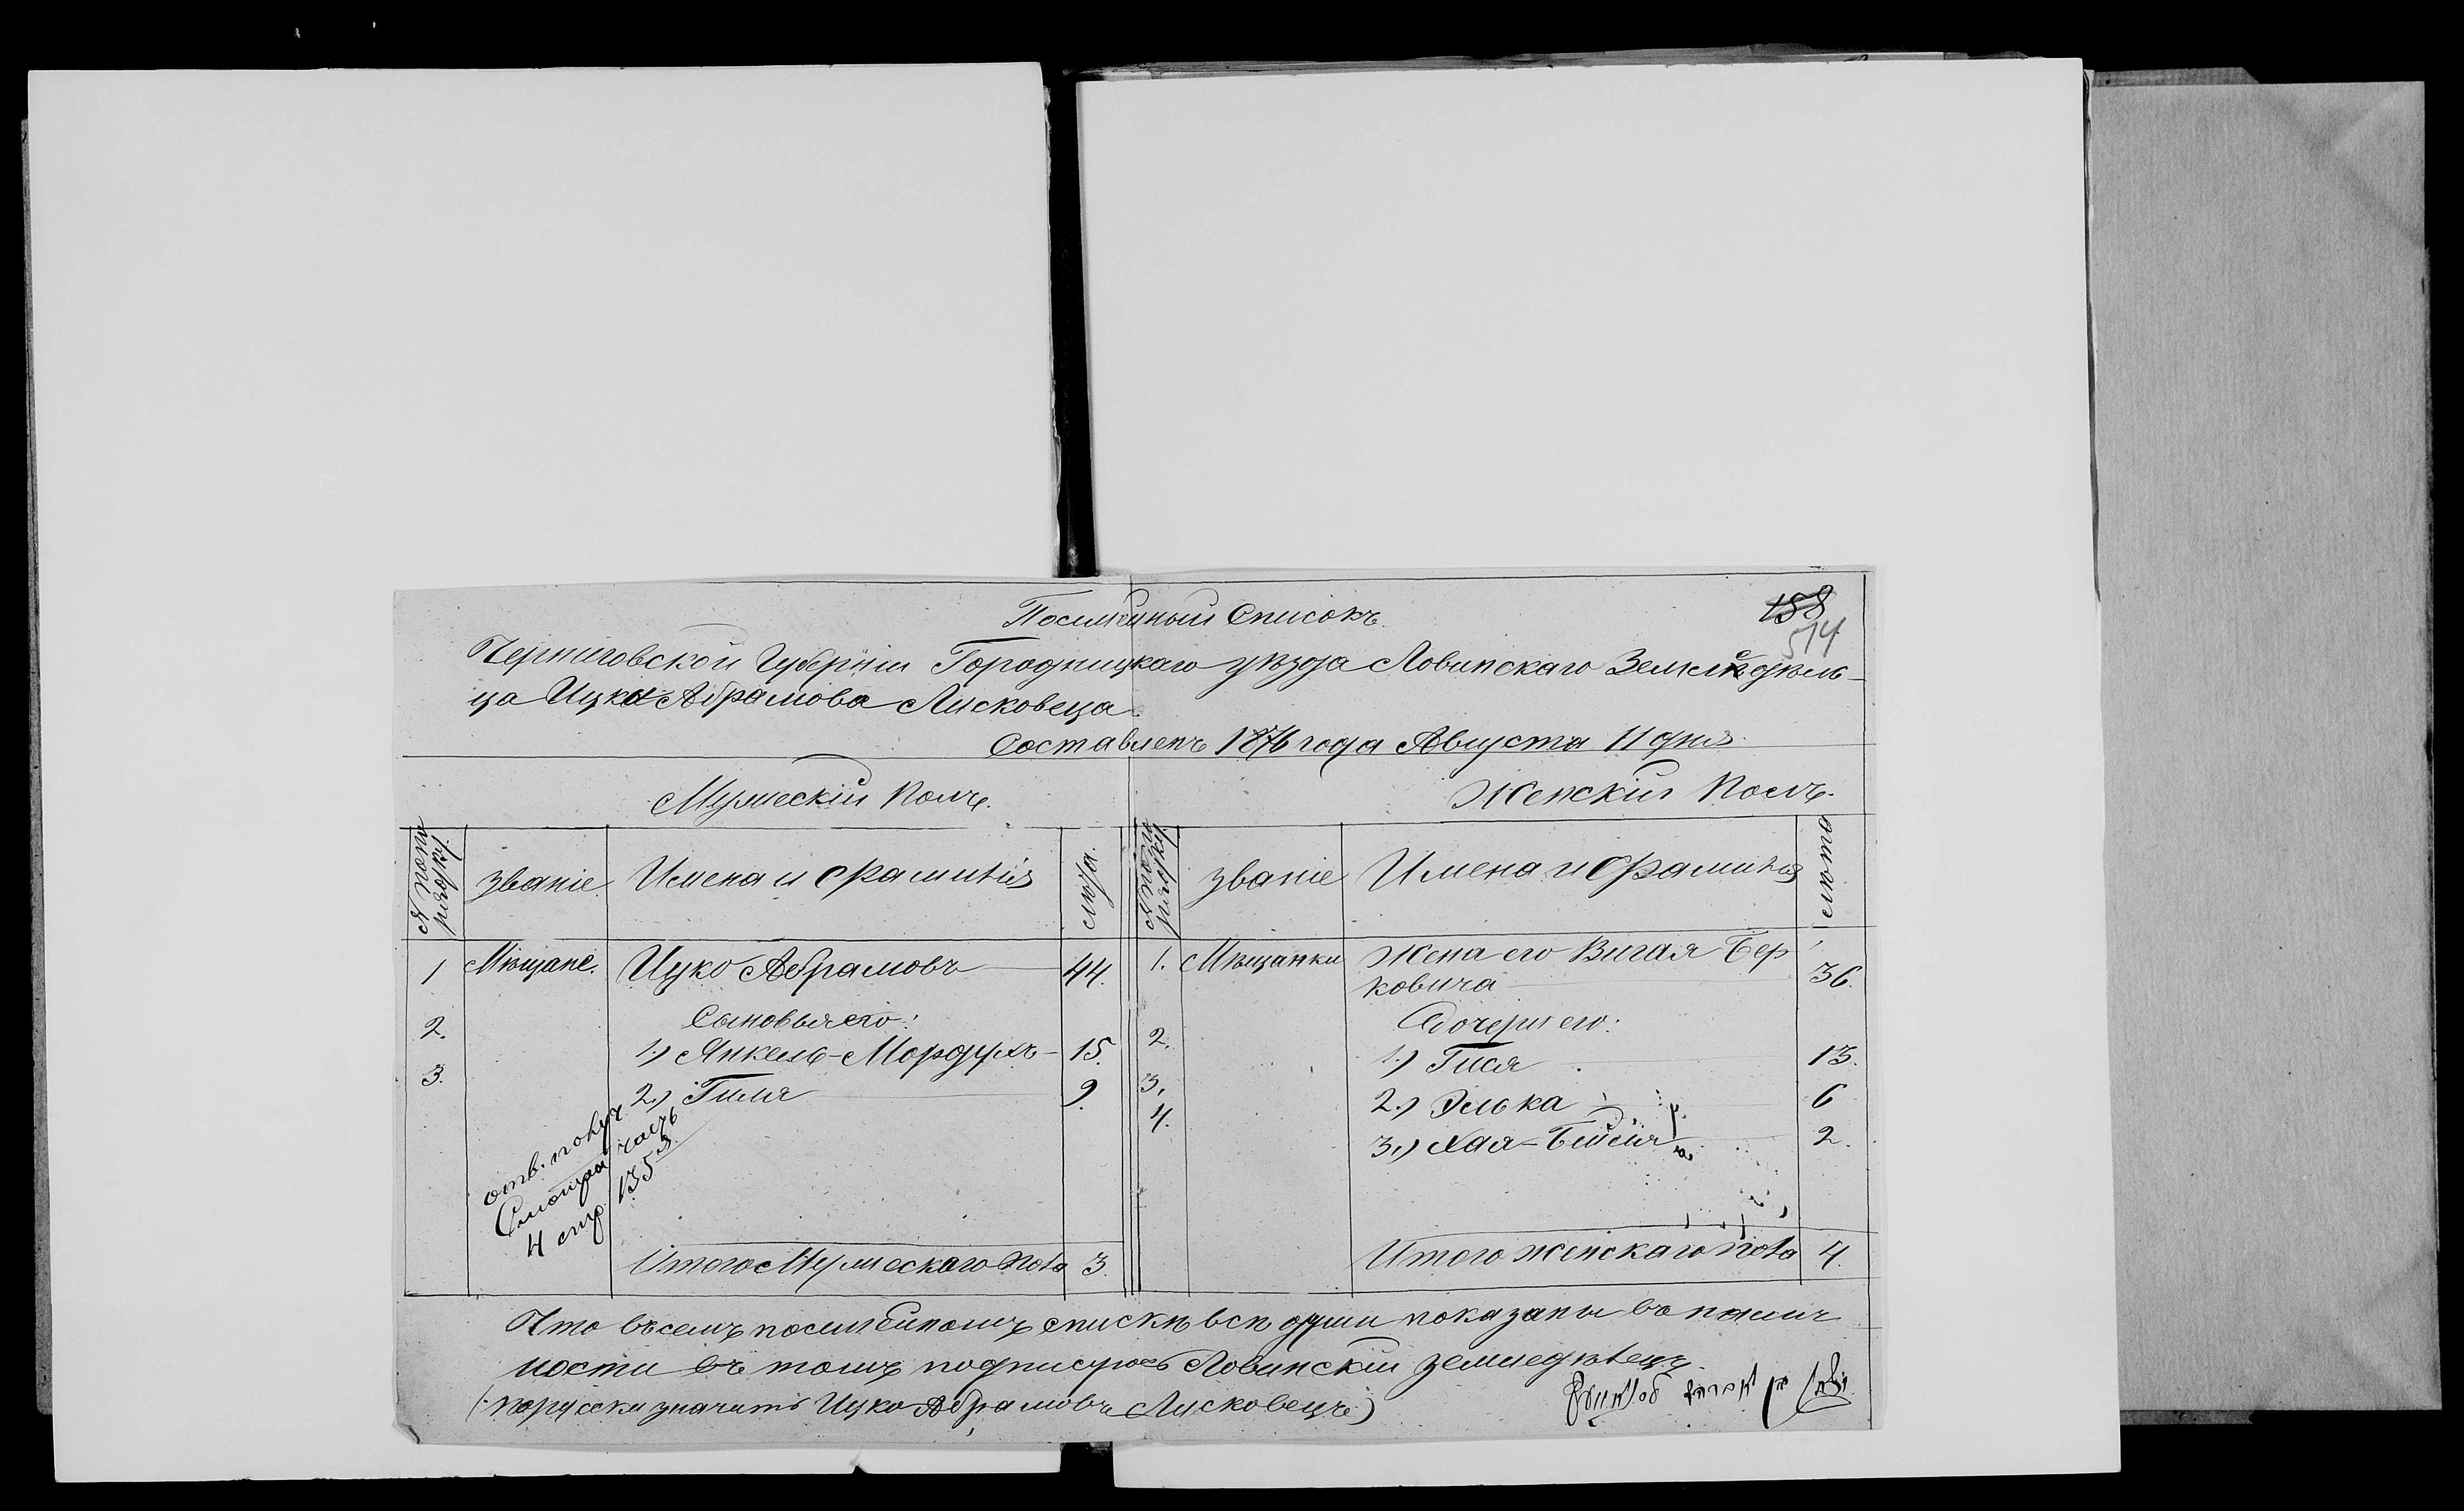 Посемейный Списокъ.
158
514
Черниговской Губерніи Городницкаго уѣзда Ловинскаго Земледѣль-
ца Ицка Абрамова Лисковеца.
Составленъ 1876 года Августа 11 дня.
Мужескій Полъ.
№ по по рядку. званіе Имена и фамилія лѣта.
1 Мѣщане. Ицко Абрамовъ 44.
Сыновья его:
2. 1.) Янкель-Мордухъ 15.
3. 2.) Гиля 9.
отв. покуч
Смотри часть
4 стр. 1353
Итого Мужескаго пола 3.
Женскій Полъ.
№ по по рядку. званіе Имена и фамилія лѣта
1. Мѣщанки Жена его Вигая Бер
ковича 36.
Дочери его:
2. 1.) Гися 13.
3. 2.) Элька 6
4. 3.) Хая-Бейля 2.
Итого женскаго пола 4.
Что въ семъ посемейномъ спискѣ всѣ души показаны въ налич
ности въ томъ подписуюсь Ловинскій земледѣлецъ.
(порусски значитъ Ицко Абрамовъ Лисковецъ)